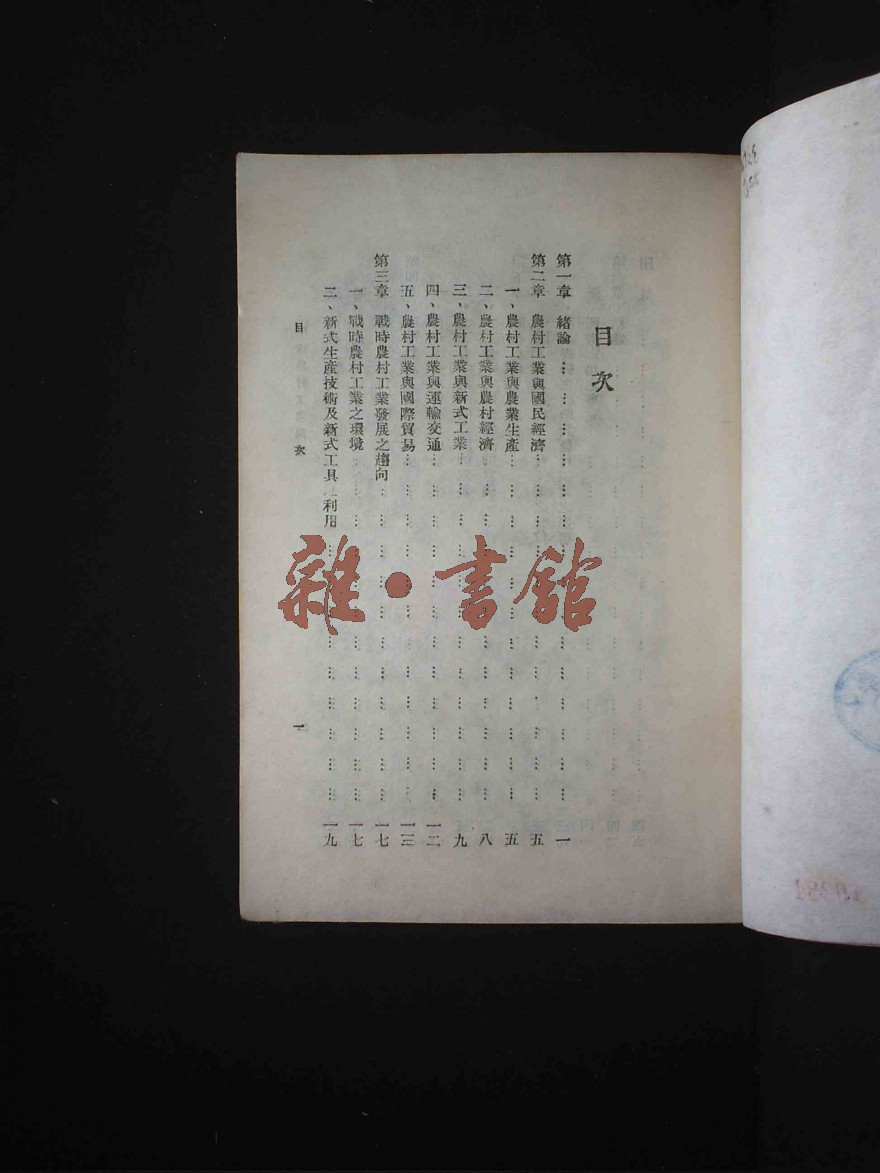 目次
第一章　緒論………………………………………一
第二章　農村工業與國民經濟………………………………………五
一、農村工業與農業生產………………………………………五
二、農村工業與農村經濟………………………………………八
三、農村工業與新式工業………………………………………九
四、農村工業與運輸交通………………………………………一二
五、農村工業與國際貿易………………………………………一三
第三章　戰時農村工業發展之趨向………………………………………一七
一、戰時農村工業之環境………………………………………一七
二、新式生產技術及新式工具之利用………………………………………一九
目次　一
雜·書館